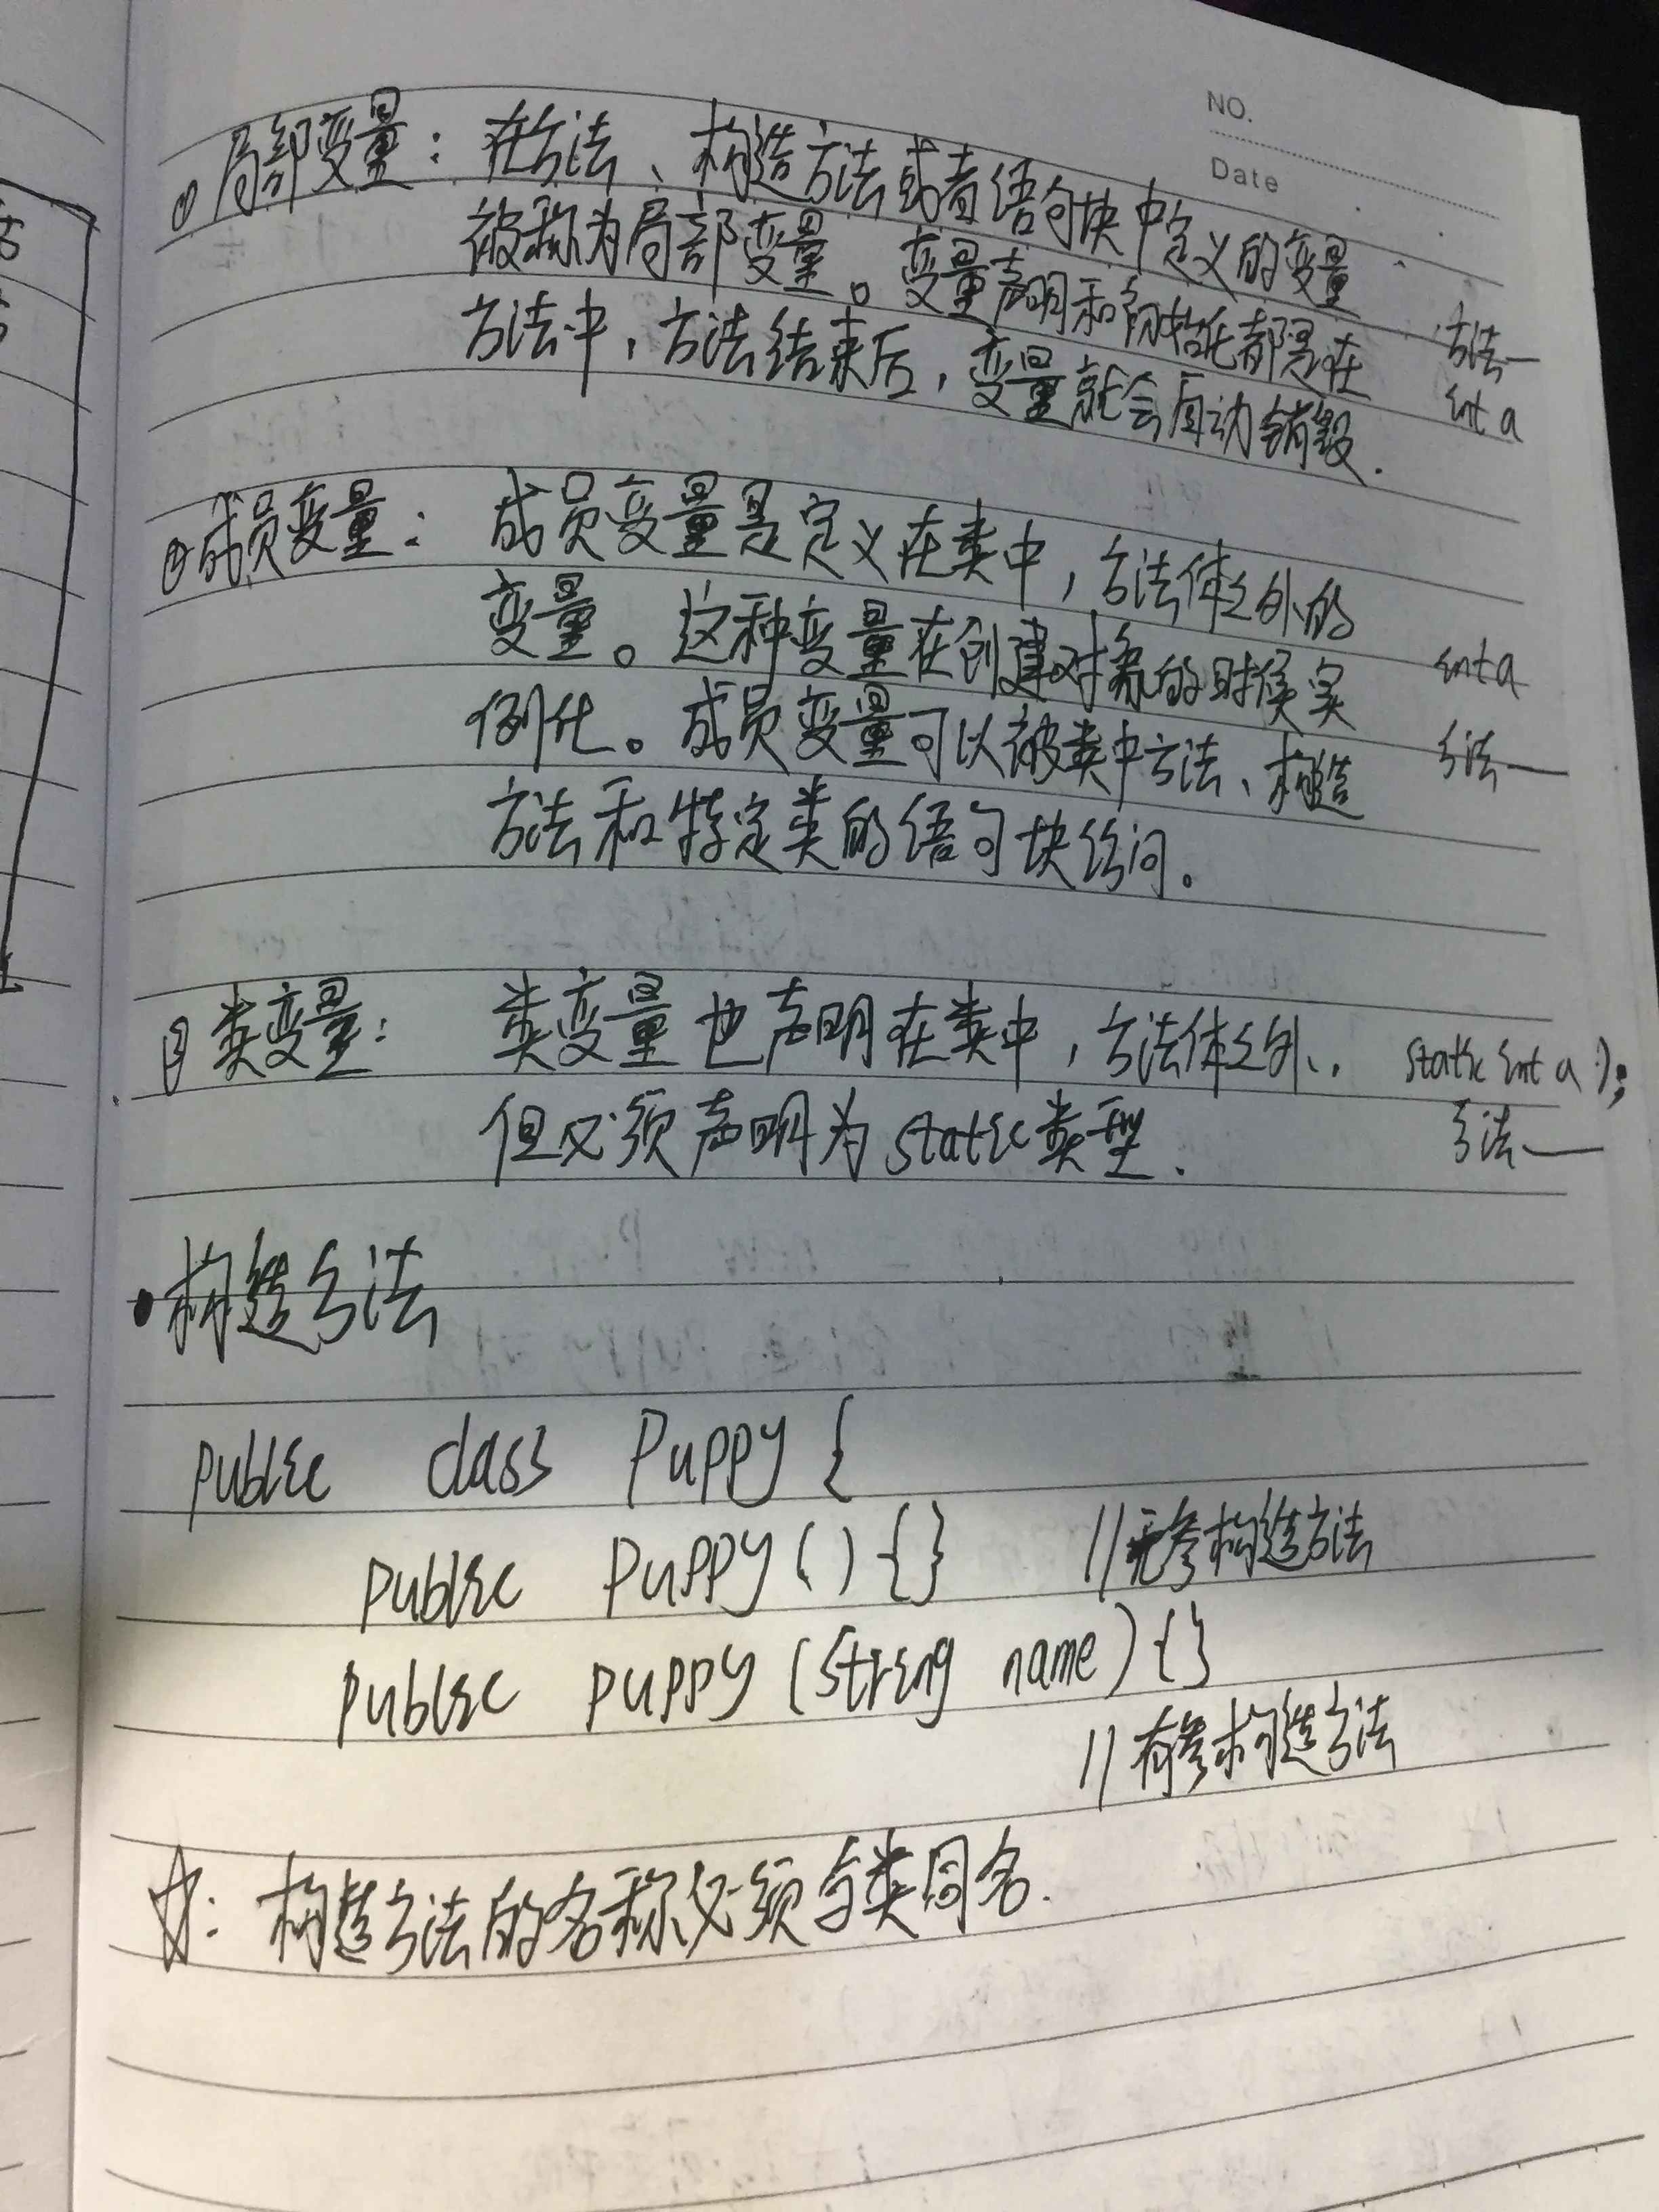 NO.
Date
① 局部变量：在方法、构造方法或者语句块中定义的变量
被称为局部变量。变量声明和初始化都是在
方法中，方法结束后，变量就会自动销毁.
方法—
int a
②成员变量：成员变量是定义在类中，方法体之外的
变量。这种变量在创建对象的时候实
例化。成员变量可以被类中方法、构造
方法和特定类的语句块访问。
int a
方法—
③类变量：类变量也声明在类中，方法体之外，.
但必须声明为static类型.
static int a );
方法—
•构造方法
public class Puppy {
public Puppy () {} //无参构造方法
public puppy (String name) {}
//有参构造方法
☆：构造方法的名称必须与类同名.